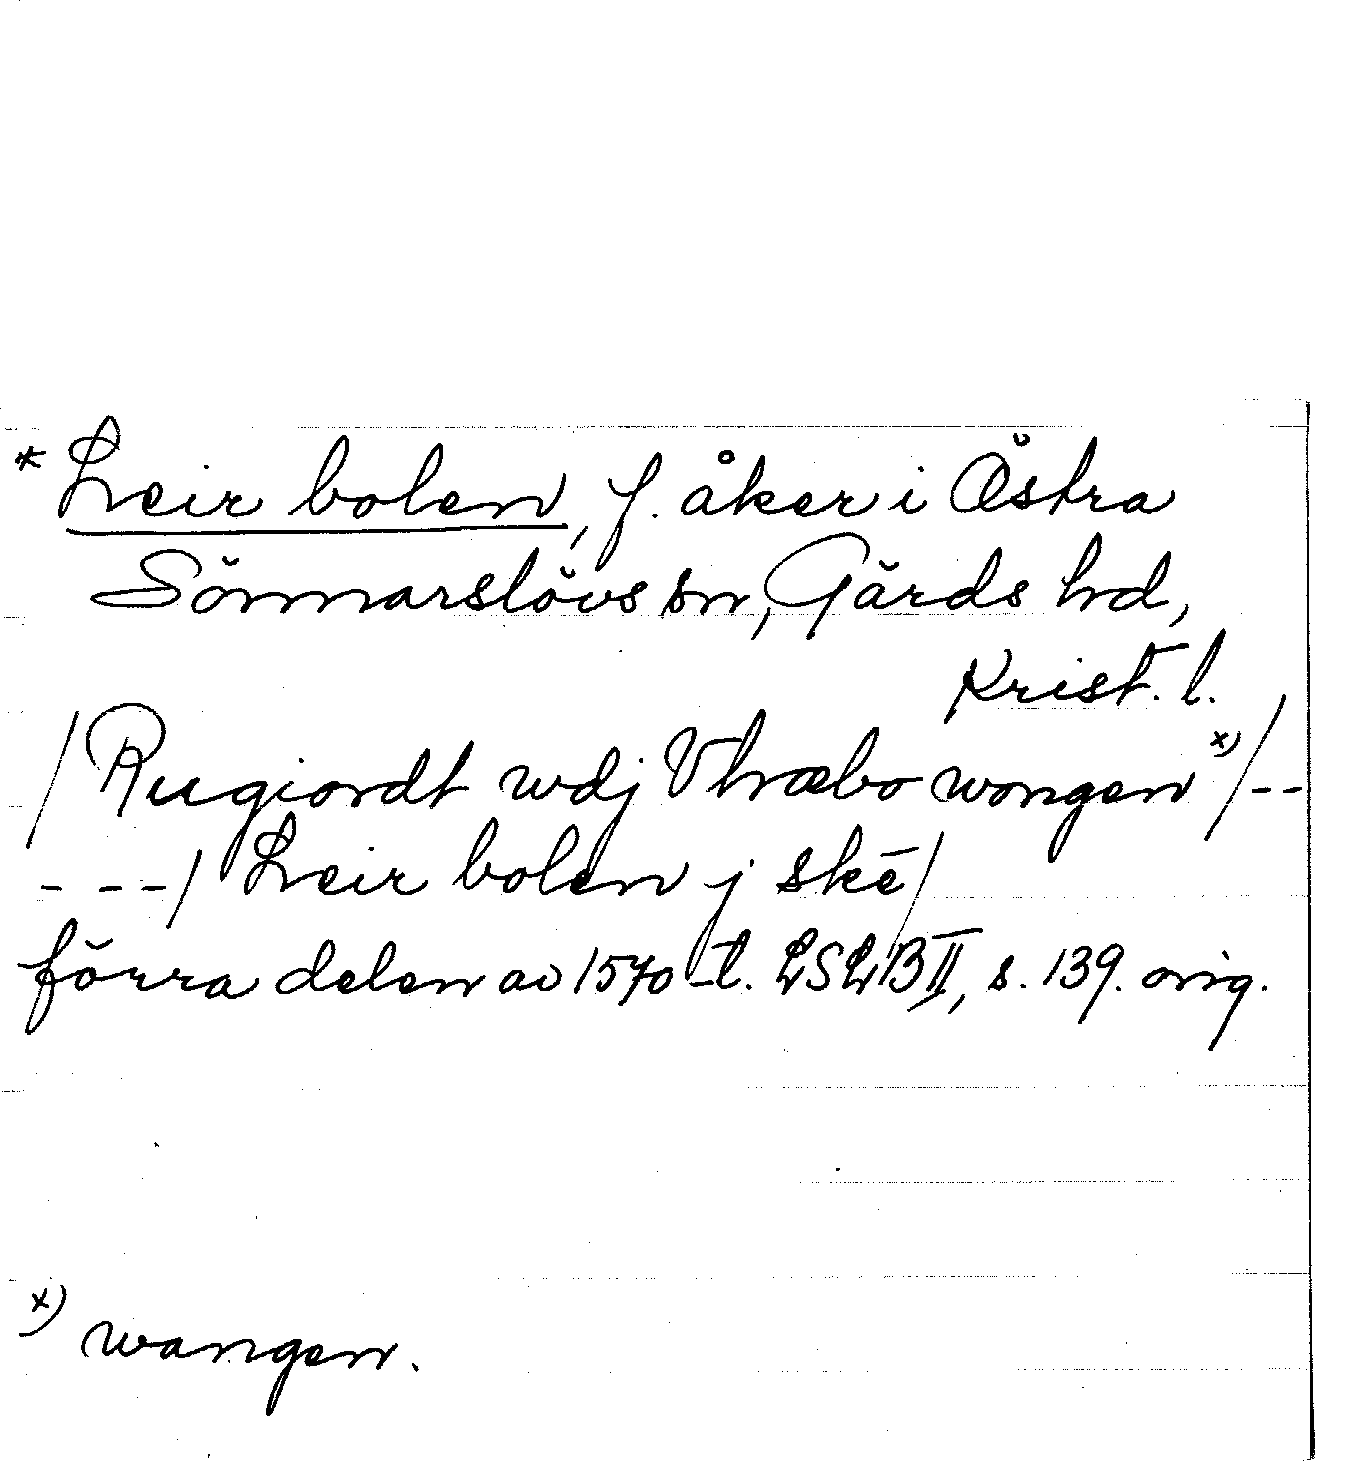 * Leir bolen, f. åker i Östra
Sönnarslövs sn, Gärds hd,
Krist. l.
/ Rugiordt wdj Vhræbo wongen x) / --
- - - / Leir bolen j skē /
förra delen av 1570-t. LSLB II, s. 139. orig.
x) wangen.